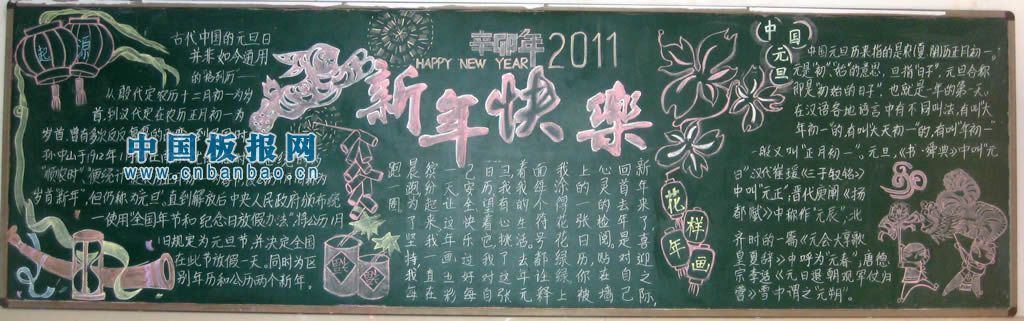 起源
古代中国的元旦日
并非如今通用
的"格列历"一
从殷代定农历十二月初一为岁
首,到汉代定在农历正月初一为
岁首,曾有多次
孙中山于1912年1月
"顺农时",
岁首新年",但仍称为元旦。直到解放后中央人民政府颁布统
一使用"全国年节和纪念日放假办法"将公历1月
1日规定为元旦节,并决定全国
在此节放假一天。同时为区
别年历和公历两个新年。
中国板报网
www.cnbanbao.cn
辛卯年 2011
HAPPY NEW YEAR
新年快樂
新年来了喜迎之际,
回首去年是对自己
心灵的检阅。贴在墙
上的一张日历,你被
我涂得花花绿绿上
面每个符号都注释
着我的生活。去年元
旦我有心挑了这张
日历望着它,我对自
己空余快乐过好每
一天,让这年画五彩
缤纷起来。我一直在
晨跑为了坚持我每
跑一圈
花样年画
中国元旦
中国元旦历来指的是农(夏、阴)历正月初一。
元是"初""始"的意思,旦指"日子",元旦合称
即是"初始的日子",也就是一年的第一天。
在汉语各地语言中有不同叫法,有叫"大
年初一"的,有叫"大天初一"的,有叫"年初一"
一般又叫"正月初一"。元旦,《书·舜典》中叫"元
日",汉代崔瑗《三子钗铭》
中叫"元正";晋代庾阐《扬
都赋》中称作"元辰",北
齐时的一篇《元会大享歌
皇夏辞》中呼为"元春";唐德
宗李适《元日退朝观军仗归
营》雪中谓之"元朔"。